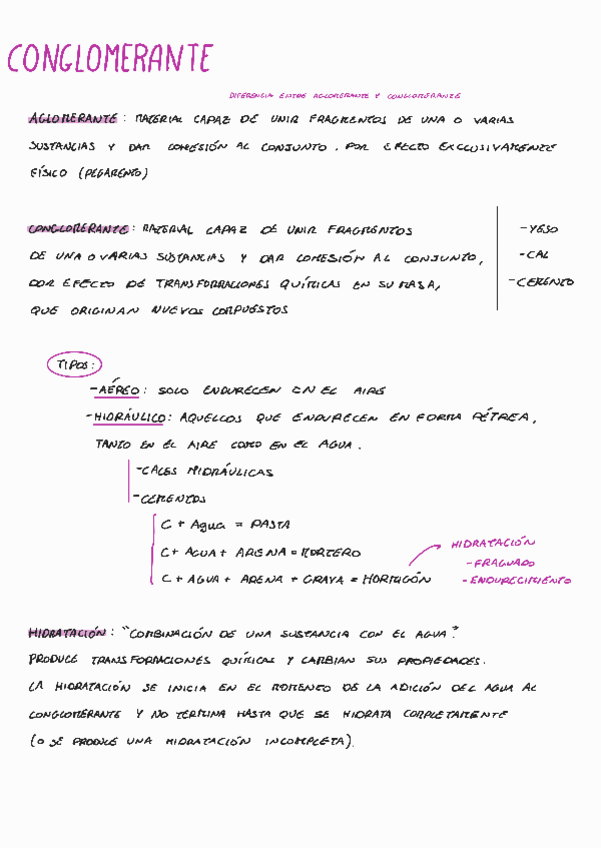 CONGLOMERANTE
DIFERENCIA ENTRE AGLOMERANTE Y CONGLOMERANTE
AGLOMERANTE: MATERIAL CAPAZ DE UNIR FRAGMENTOS DE UNA O VARIAS
SUSTANCIAS Y DAR COHESIÓN AL CONJUNTO. POR EFECTO EXCLUSIVAMENTE
FÍSICO (PEGAMENTO)
CONGLOMERANTE: MATERIAL CAPAZ DE UNIR FRAGMENTOS
DE UNA O VARIAS SUSTANCIAS Y DAR COHESIÓN AL CONJUNTO,
POR EFECTO DE TRANSFORMACIONES QUÍMICAS EN SU MASA,
QUE ORIGINAN NUEVOS COMPUESTOS
-YESO
-CAL
-CEMENTO
TIPOS:
-AÉREO: SOLO ENDURECEN EN EL AIRE
-HIDRÁULICO: AQUELLOS QUE ENDURECEN EN FORMA PÉTREA,
TANTO EN EL AIRE COMO EN EL AGUA.
-CALES HIDRÁULICAS
-CEMENTOS
C + Agua = PASTA
C + AGUA + ARENA = MORTERO
C + AGUA + ARENA + GRAVA = HORMIGÓN
HIDRATACIÓN
-FRAGUADO
-ENDURECIMIENTO
HIDRATACIÓN: "COMBINACIÓN DE UNA SUSTANCIA CON EL AGUA".
PRODUCE TRANSFORMACIONES QUÍMICAS Y CAMBIAN SUS PROPIEDADES.
LA HIDRATACIÓN SE INICIA EN EL MOMENTO DE LA ADICIÓN DEL AGUA AL
CONGLOMERANTE Y NO TERMINA HASTA QUE SE HIDRATA COMPLETAMENTE
(O SE PRODUCE UNA HIDRATACIÓN INCOMPLETA).